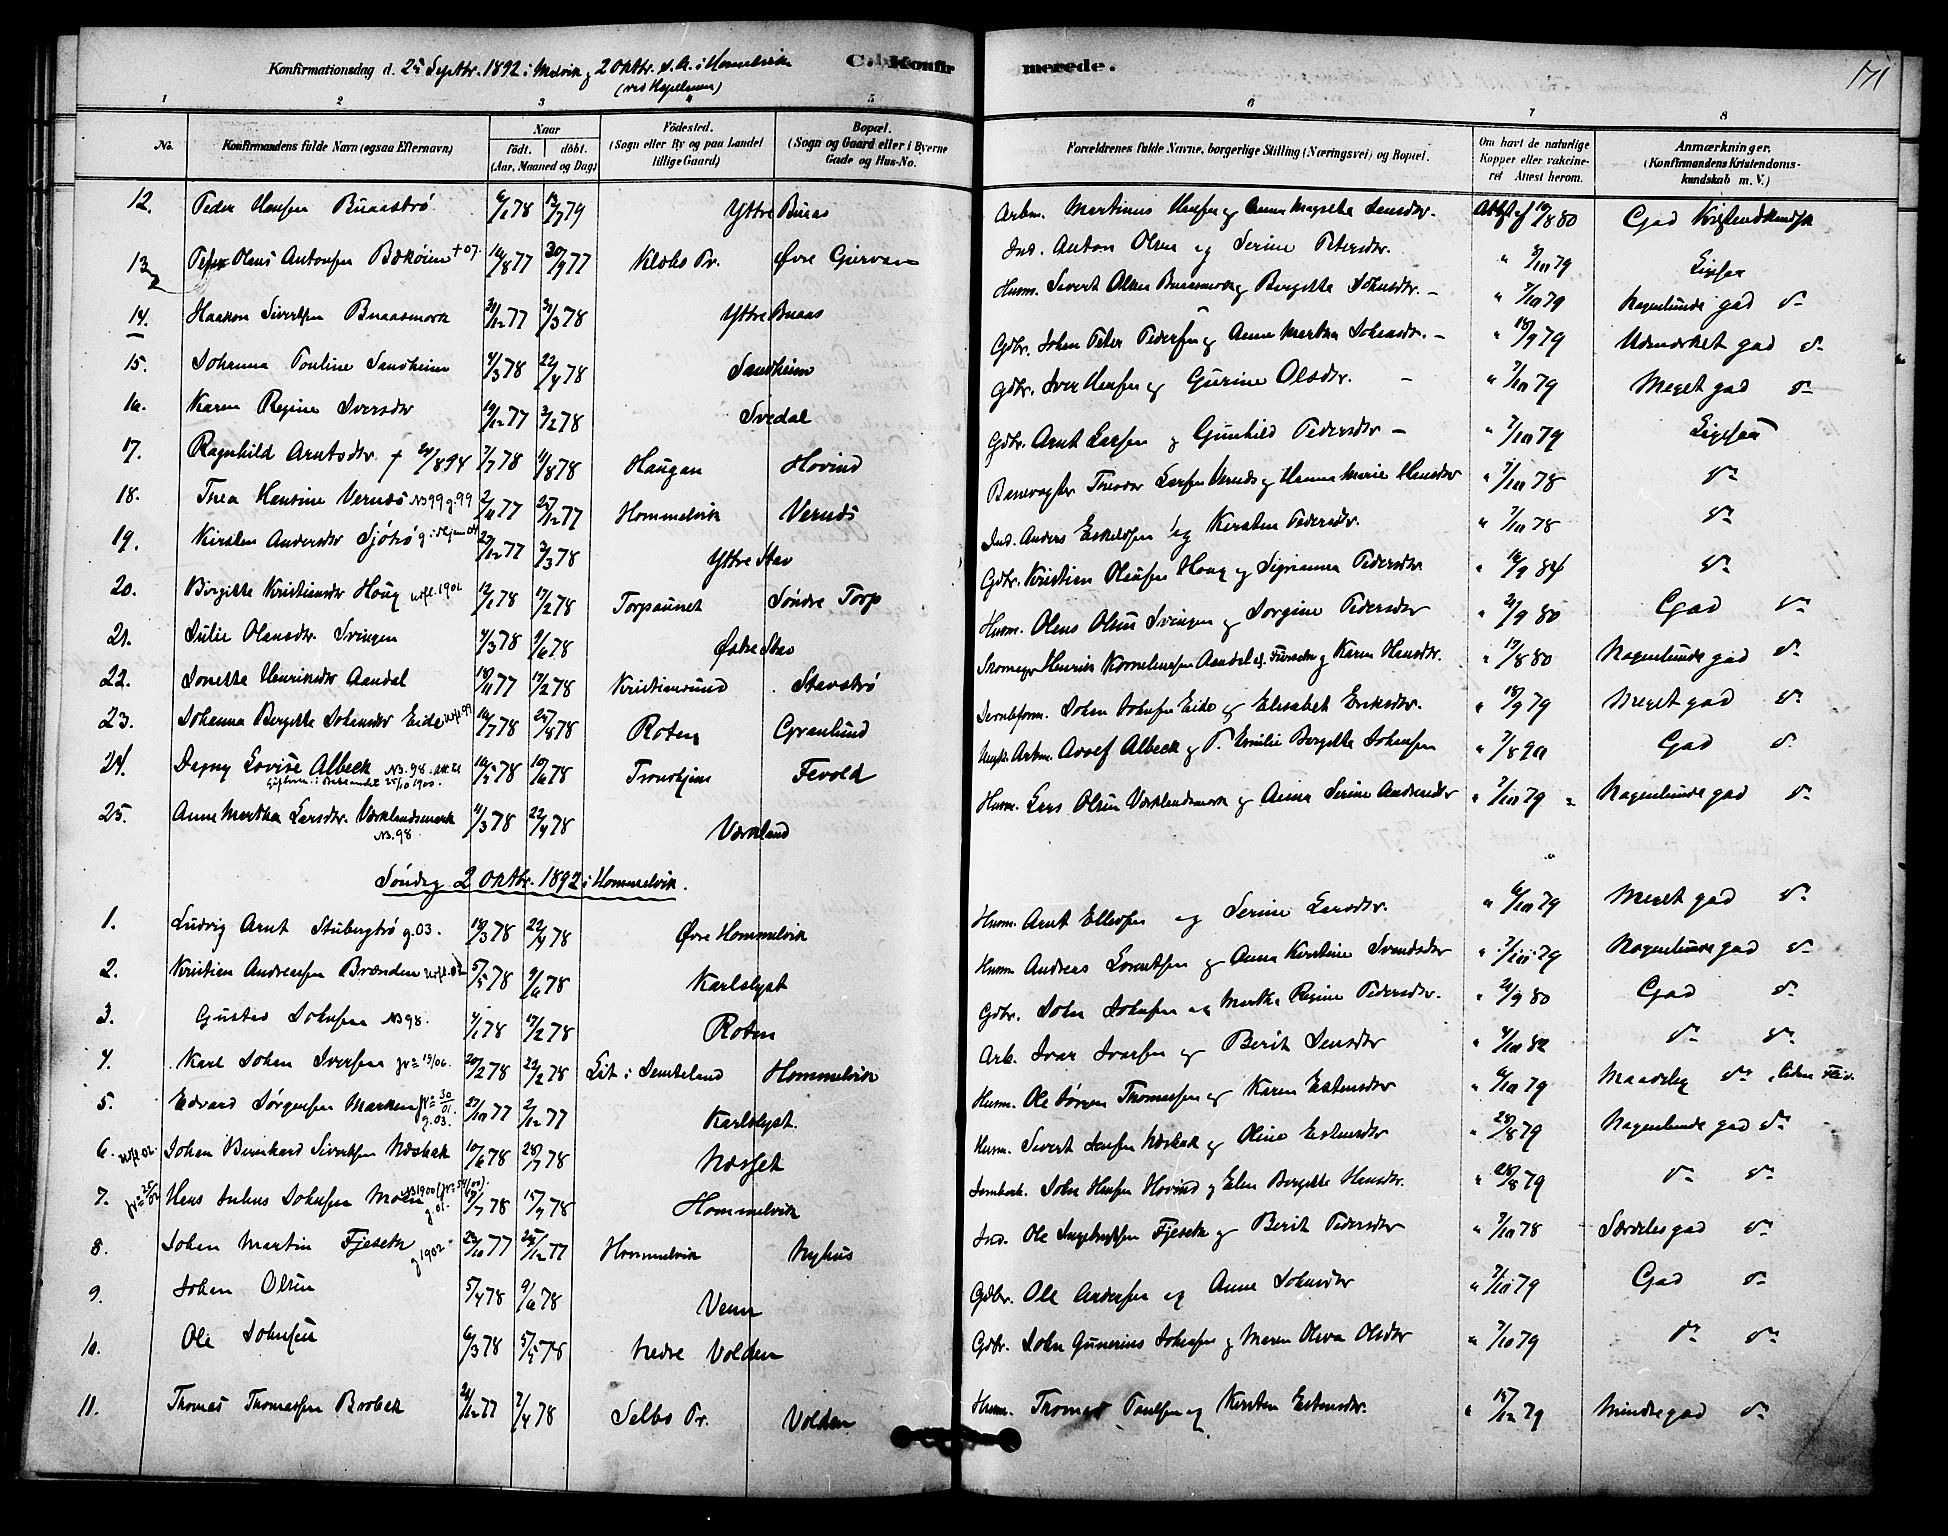 Konfirmationsdag d. 25 Septbr. 1892 i Malvik og 2 Oktbr. s. A. i Hommelvik C. Konfirmerede. 171
(ved Kapellanen)
1 2 3 4 5 6 7 8
No. Konfirmandens fulde Navn (ogsaa Efternavn) Naar födt. döbt. (Aar, Maaned og Dag) Födested. (Sogn eller By og paa Landet tillige Gaard) Bopæl. (Sogn og Gaard eller i Byerne Gade og Hus-No. Forældrenes fulde Navne, borgerlige Stilling (Næringsvei) og Bopæl. Om havt de naturlige Kopper eller vakcineret Attest herom. Anmærkninger. (Konfirmandens Kristendomskundskab m. V.)
12. Peder Hansen Buaastrø 6/1 78 13/7 79 Yttre Buaas Arbm. Martinus Hansen og Anna Margrethe Jensdtr. Att. af 19/8 80 God Kristendkundsk
13 Peter Olaus Antonsen Bæköien + 07. 16/8 77 30/9 77 Klæbo Pr. Øvre Gjervan Ind. Anton Olsen og Serine Petersdtr. " 8/10 79 Ligesaa
14. Haakon Sivertsen Buaasmark 31/12 77 31/3 78 Yttre Buaas Husm. Sivert Olsen Buaasmark og Bergitte Johnsdtr. - " 7/10 79 Nogenlunde god do
15. Johanna Pauline Sandheim 4/3 78 22/4 78 Sandheim Gdbr. Johan Peter Pedersen og Anne Martha Johansdtr. - " 18/9 79 Udmærket god do
16. Karen Regine Iversdtr 19/12 77 3/2 78 Svedal Gdbr. Iver Hansen og Gurine Olsdtr. - " 7/10 79 Meget god do
17. Ragnhild Arntsdtr + 21/8 94 7/7 78 11/8 78 Haugan Hovind Gdbr. Arnt Larsen og Gunhild Pedersdtr - " 7/10 79 Ligesaa
18. Thea Hansine Vernes N3 99 g. 99 2/11 77 25/12 77 Hommelvik Vernes Banevogter Theodor Larsen Vernes og Hanna Marie Hansdtr " 7/10 78 do
19. Kirsten Andersdtr Sjötrø 27/12 77 3/3 78 Yttre Stav Ind. Anders Eskildsen og Kirsten Pedersdtr. " 7/10 78 do
20. Birgitte Kristiansdtr Houg utfl. 1902 12/1 78 17/2 78 Torpaunet Søndre Torp Gdbr. Kristian Olausen Houg og Sigrianna Pedersdtr. " 16/9 84 do
21. Julie Olausdtr. Svingen 4/3 78 9/6 78 Østre Stav Husm. Olaus Olsen Svingen og Sørgine Pedersdtr " 21/9 80 God do
22. Jonetta Henriksdtr Aandal 18/11 77 17/2 78 Kristiansund Stavstrø Skomager Henrik Kornelius Aandal og Karen Hansdtr. " 19/8 80 Nogenlunde god do
23. Johanna Bergitte Johansdtr Eide utfl. 99 16/7 78 25/8 78 Roten Granlund Johan Johansen Eide og Elisabet Eriksdtr. " 18/9 79 Meget god do
24. Dagny Lovise Albeck N3. 98. 16/5 78 10/6 78 Trondhjem Fevold Arbm. Adolf Albeck og F. Emilie Bergitte Johansen " 7/8 90 God do
25/10 1900.
25. Anne Martha Larsdtr. Værklandsmark 11/3 78 22/4 78 Værkland Husm. Lars Olsen Værklandsmark og Anne Serine Andreasdtr " 7/10 79 Nogenlunde god do
N3. 98
Søndag 2 Oktbr. 1892 i Hommelvik.
1. Ludvig Arnt Stubergtrø g. 03. 18/3 78 22/4 78 Øvre Hommelvik Husm. Arnt Ellefsen og Serine Larsdtr. " 6/10 79 Meget god do
2. Kristian Andreassen Brænden utfl. 02 5/5 78 9/6 78 Karlslyst Husm Andreas Lorentsen og Anna Kirstine Svendsdtr " 7/10 79 Nogenlunde god do
3. Gustav Johnsen N3 98. 4/1 78 17/2 78 Roten Gdbr. John Johnsen og Martha Regine Pedersdtr. " 21/9 80 God do
4. Karl Johan Iversen 20/2 78 22/2 78 Lit i Jemteland Hommelvik Arb. Ivar Ivarsen og Berit Jensdtr " 4/10 82 do do
5. Edvard Jørgensen Marken 27/10 77 2/12 77 Karlslyst. Husm. Ole Jørgen Thomassen og Karen Estensdtr " 6/10 79 Maadelig do
g. 03.
6. utfl 02. Johan Bernhard Sivertsen Næsbak 10/6 78 28/7 78 Næsset Husm. Sivert Jensen Næsbak og Oline Estensdtr " 28/8 79 Nogenlunde god do
7. Hans Julius Johnsen Moen 18/7 78 15/9 78 Hommelvik John Hansen Hovind og Elen Bergitte Hansdtr. " 28/8 79 do do
8. Johan Martin Fjesetk g 1902 23/10 77 25/12 77 Hommelvik Nyhus Ind. Ole Ingebrigtsen Fjesetk og Berit Pedersdtr " 7/10 78 Særdeles god do
9. Johan Olsen 5/4 78 9/6 78 Venn Gdbr. Ole Andersen og Anne Johnsdtr " 7/10 79 God do
10. Ole Johnsen 6/3 78 5/5 78 Nedre Volden Gdbr. John Gunerius Johnsen og Maren Oliva Olsdtr " 7/10 79 do do
11. Thomas Thomassen Brobek 24/12 77 7/4 78 Selbo Pr. Volden Husm. Thomas Paulsen og Kirsten Estensdtr. " 15/12 79 Mindre god do